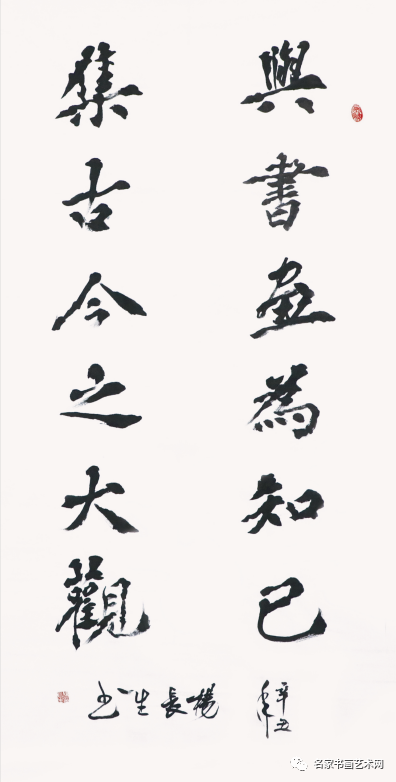 與書畫為知己
集古今之大觀
辛丑年
楊長生书
名家书画艺术网